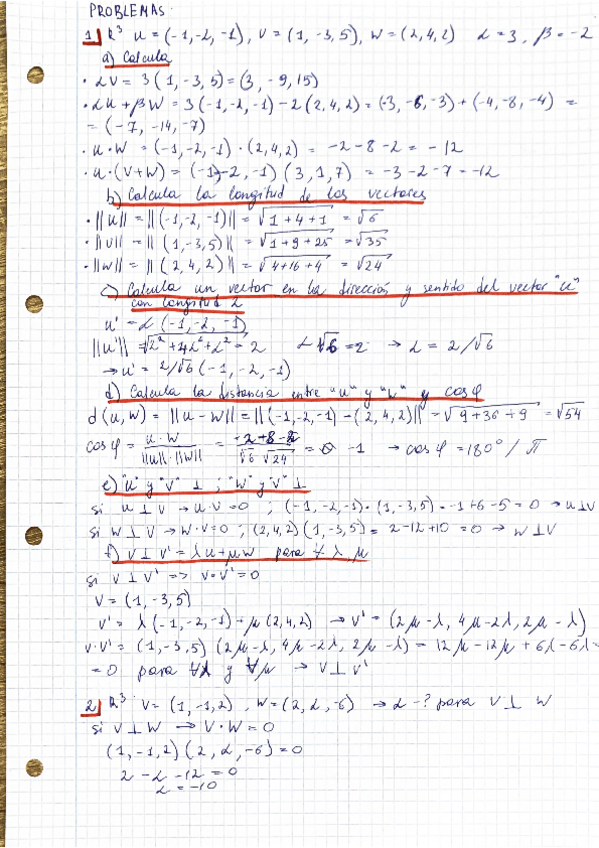 PROBLEMAS
1 R³ u = (-1,-2,-1), v = (1,-3,5), w = (2,4,2) α = 3, β = -2
a) Calcula
· αv = 3(1,-3,5) = (3, -9, 15)
· αu + βw = 3(-1,-2,-1) - 2(2,4,2) = (-3, -6, -3) + (-4, -8, -4) =
= (-7, -14, -7)
· u·w = (-1,-2,-1)·(2,4,2) = -2-8-2 = -12
· u·(v+w) = (-1,-2,-1)(3,1,7) = -3-2-7 = -12
b) Calcula la longitud de los vectores
· ||u|| = ||(-1,-2,-1)|| = √1+4+1 = √6
· ||v|| = ||(1,-3,5)|| = √1+9+25 = √35
· ||w|| = ||(2,4,2)|| = √4+16+4 = √24
c) Calcula un vector en la dirección y sentido del vector "u"
con longitud 2
u' = α(-1,-2,-1)
||u'|| = √α²+4α²+α² = 2 α√6 = 2 → α = 2/√6
→ u' = 2/√6 (-1,-2,-1)
d) Calcula la distancia entre "u" y "w" y cos φ
d(u,w) = ||u-w|| = ||(-1,-2,-1)-(2,4,2)|| = √9+36+9 = √54
cos φ = u·w / ||u||·||w|| = -2+8-2 / √6 √24 = -1 → cos φ = 180° / π
e) "u" y "v" ⊥ ; "w" y "v" ⊥
si u⊥v → u·v = 0 ; (-1,-2,-1)·(1,-3,5) = -1+6-5 = 0 → u⊥v
si w⊥v → w·v = 0 ; (2,4,2)(1,-3,5) = 2-12+10 = 0 → w⊥v
f) v⊥v' = λu+μw para ∀ λ μ
si v⊥v' => v·v' = 0
v = (1,-3,5)
v' = λ(-1,-2,-1)+μ(2,4,2) → v' = (2μ-λ, 4μ-2λ, 2μ-λ)
v·v' = (1,-3,5)(2μ-λ, 4μ-2λ, 2μ-λ) = 12μ-12μ+6λ-6λ=
= 0 para ∀λ y ∀μ → v⊥v'
2 R³ v = (1,-1,2), w = (2,α,-6) → α-? para v⊥w
si v⊥w → v·w = 0
(1,-1,2)(2,α,-6) = 0
2-α-12 = 0
α = -10